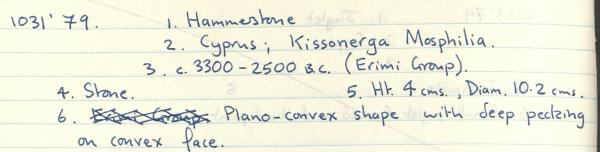 1031'79. 1. Hammerstone
2. Cyprus; Kissonerga Mosphilia.
3. c. 3300-2500 B.C. (Erimi Group).
4. Stone. 5. Ht. 4 cms., Diam. 10.2 cms.
6. Plano-convex shape with deep pecking
on convex face.